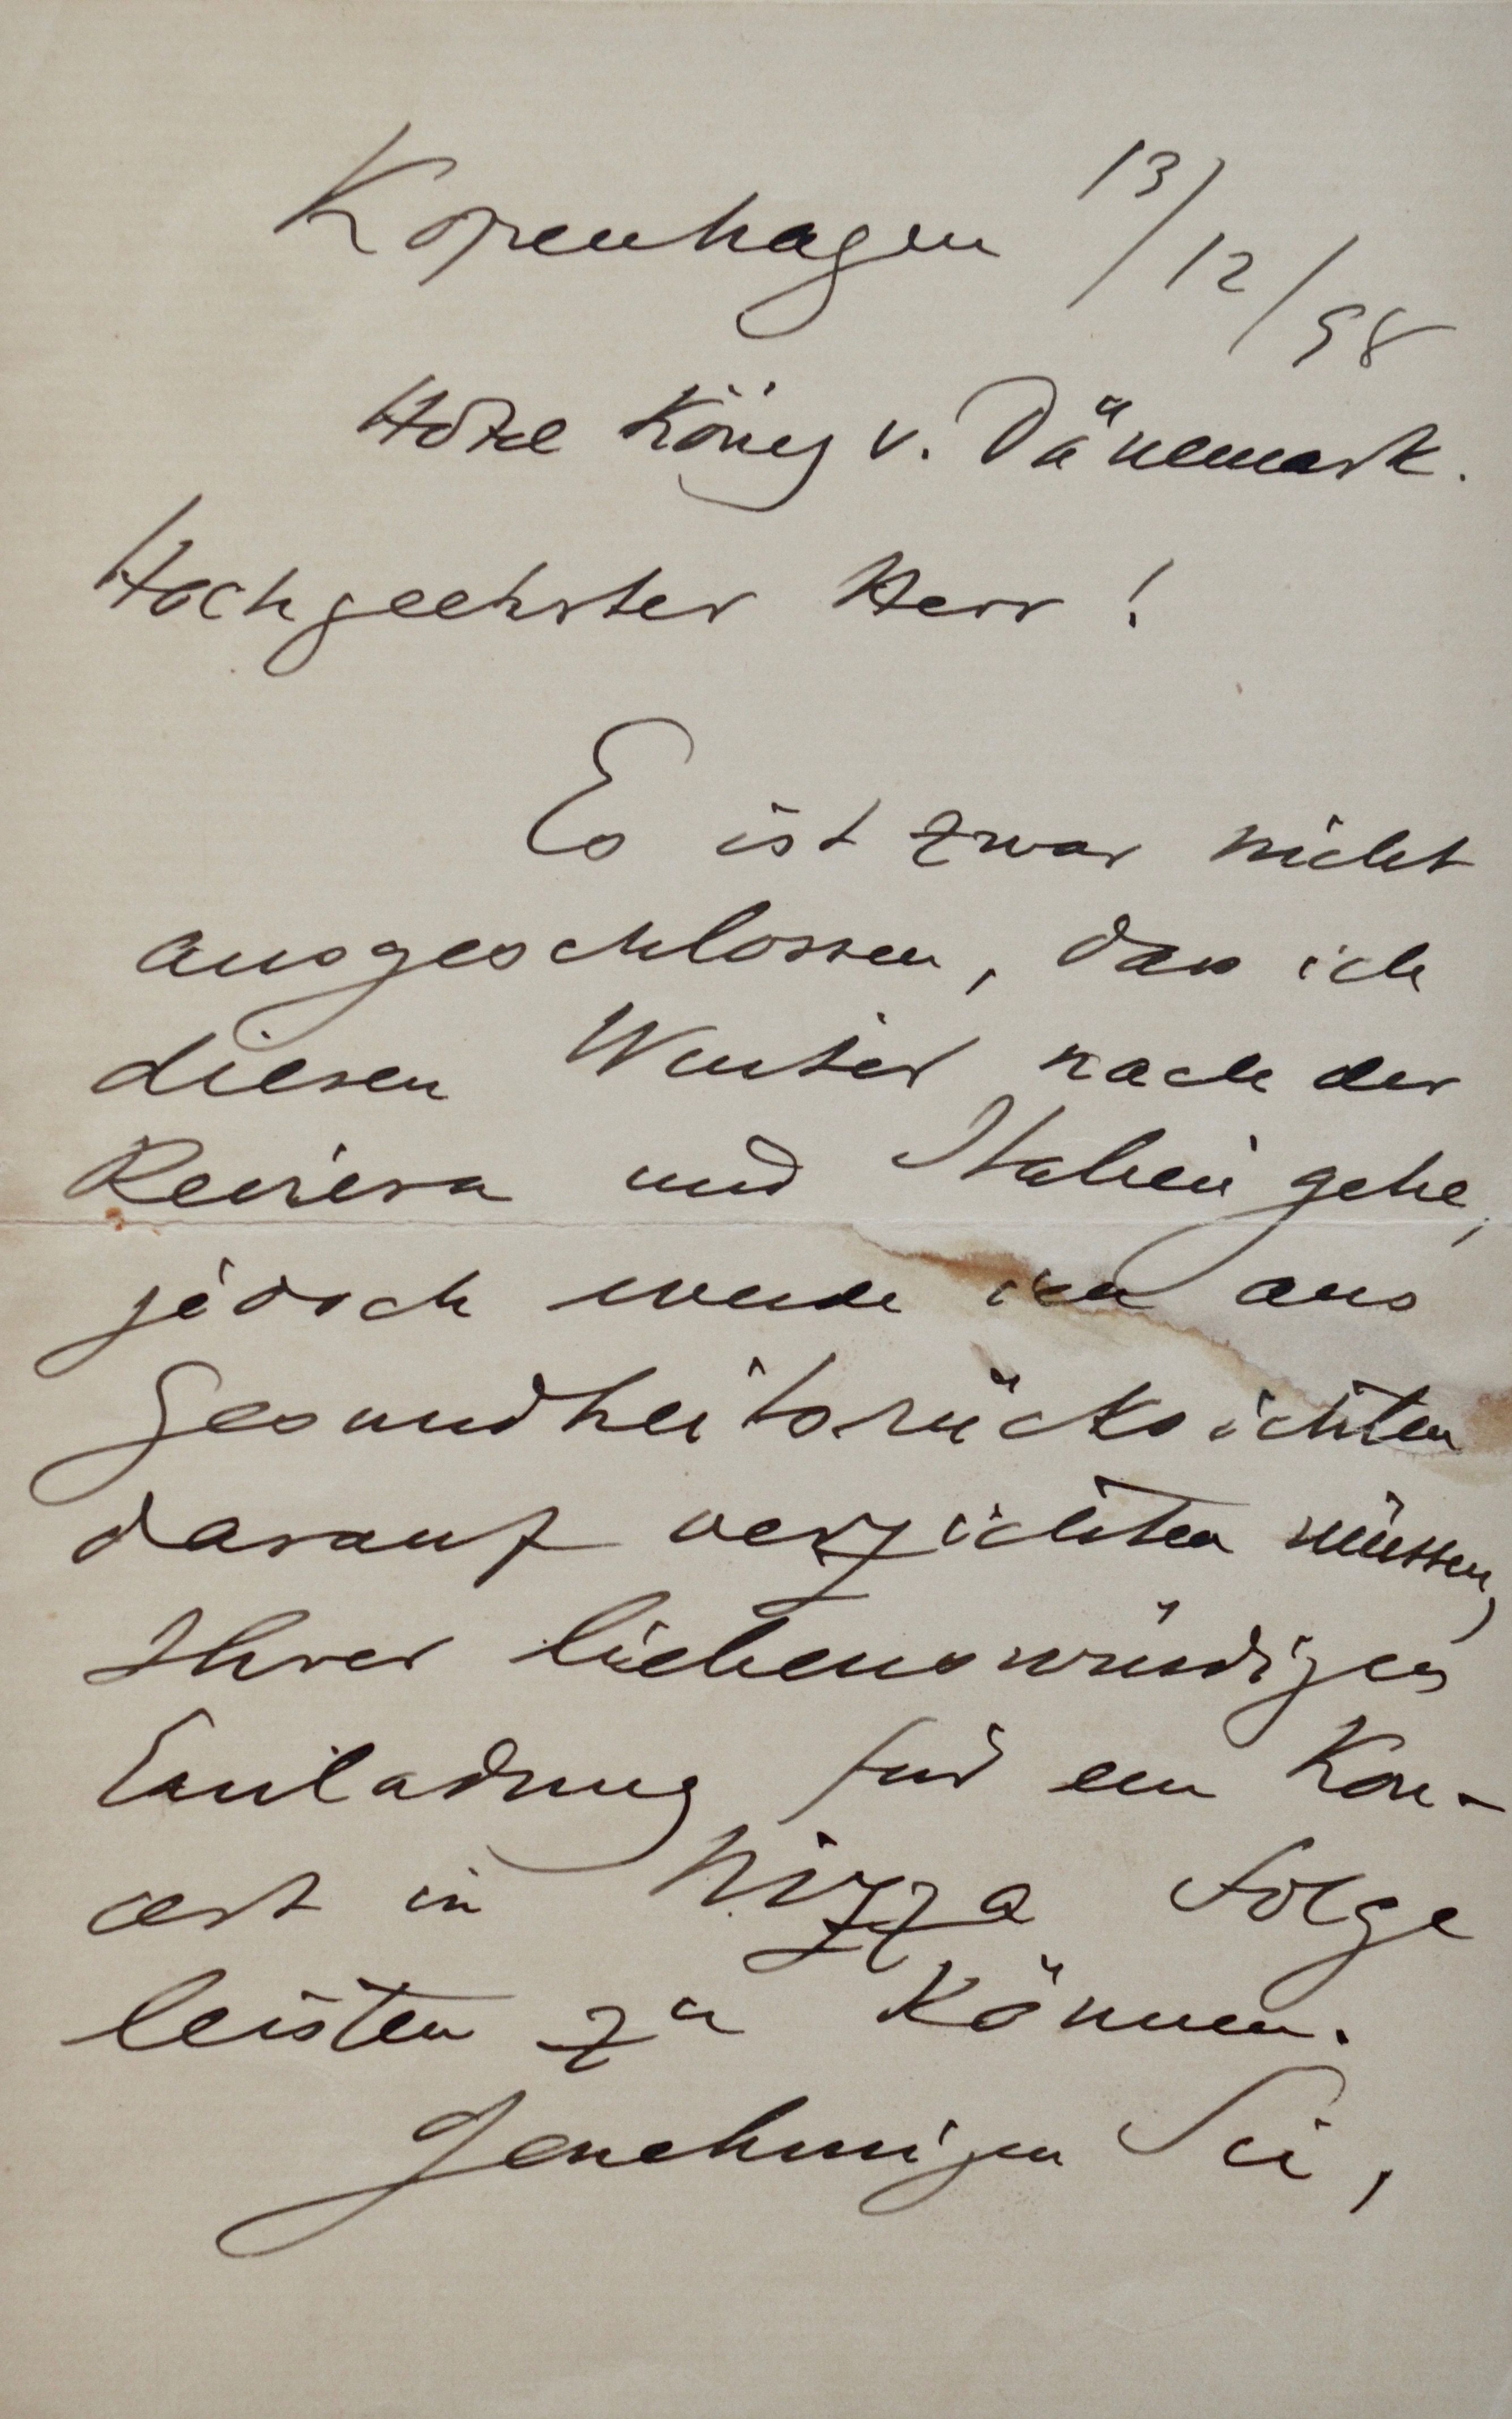 Kopenhagen 13/12/98
Hotel König v. Dänemark.
Hochgeehrter Herr!
Es ist zwar nicht
ausgeschlossen, dass ich
diesen Winter nach der
Reviera und Italien gehe,
jedoch werde ich aus
Gesundheitsrücksichten
darauf verzichten müssen,
Ihrer liebenswürdigen
Einladung für ein Kon-
cert in Nizza Folge
leisten zu können.
Genehmigen Sie,